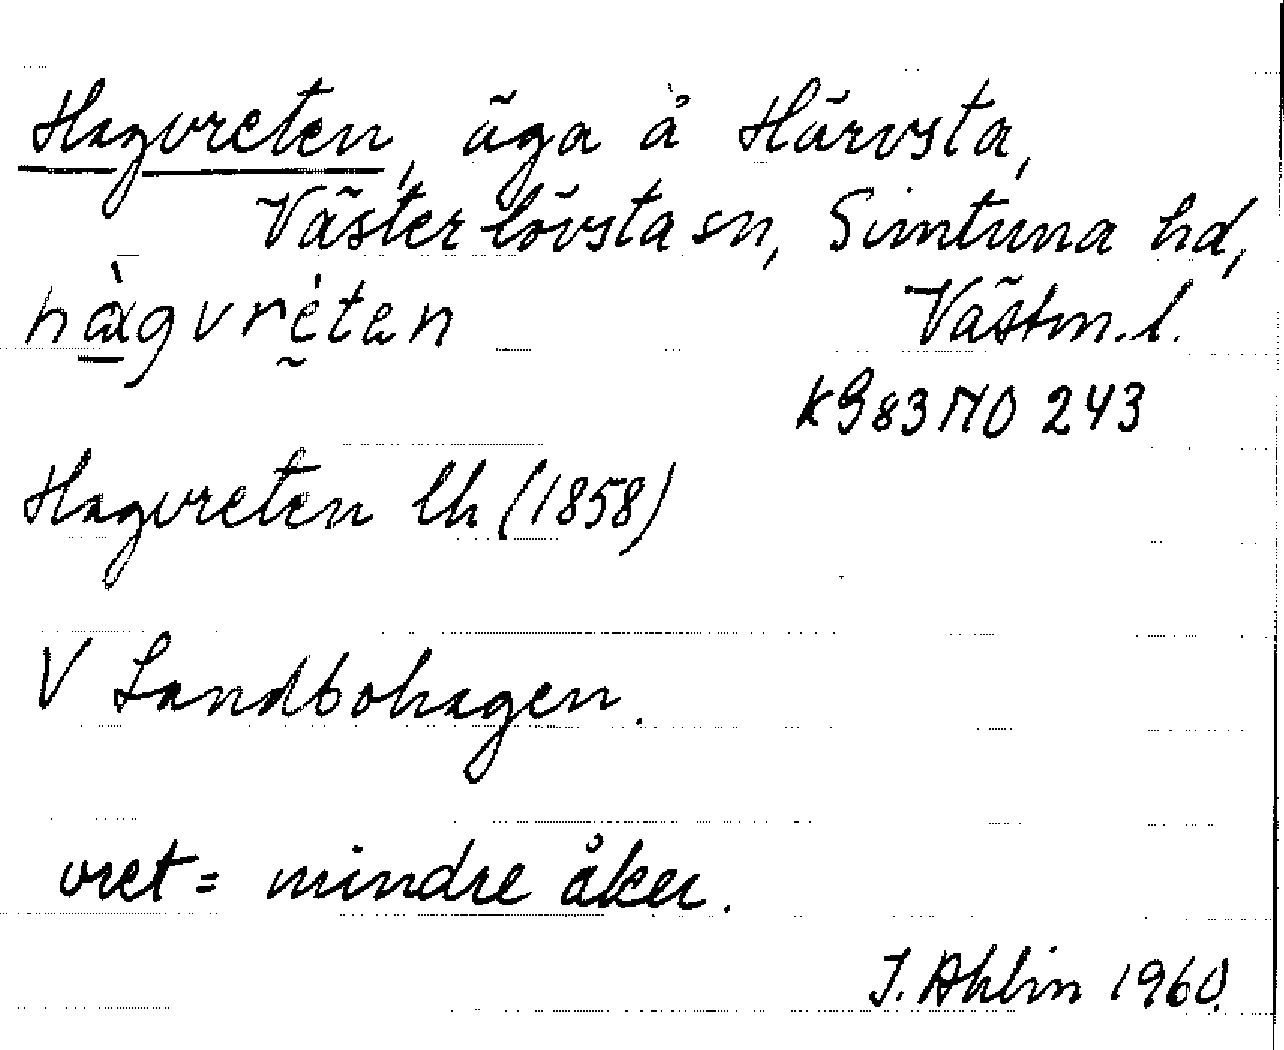 Hagvreten, äga å Härvsta,
Västerlövsta sn, Simtuna hd,
hàgvréten Västm.l.
K983NO 243
Hagvreten lh (1858)
V Landbohagen.
vret = mindre åker.
J. Ahlin 1960.